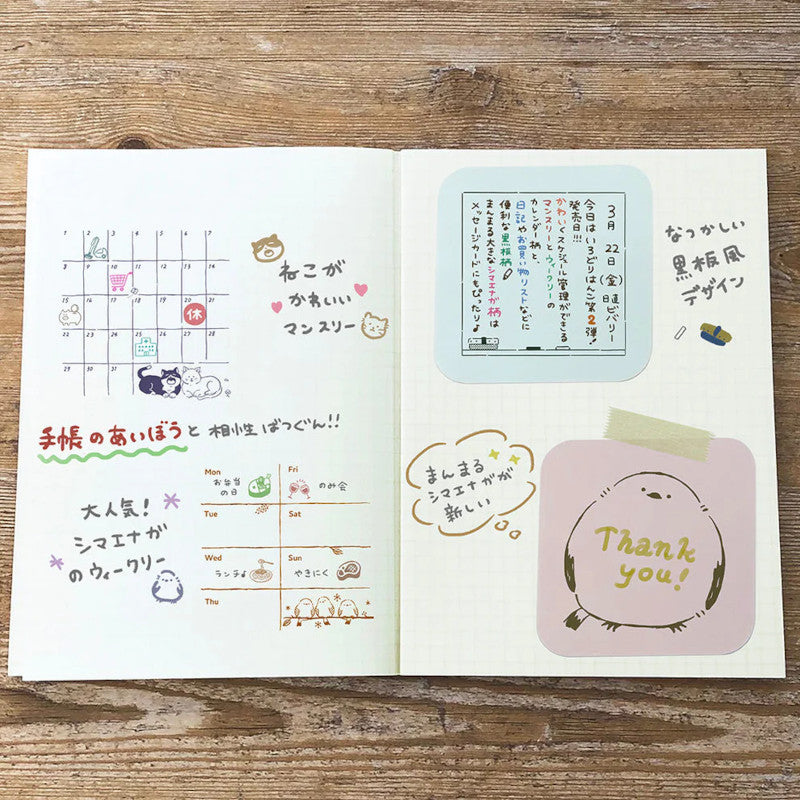 1 2 3 4 5 6 7
8 9 10 11 12 13 14
15 16 17 18 19 20 21
休
22 23 24 25 26 27 28
29 30 31
ねこが
かわいい
マンスリー
手帳のあいぼうと相性ばつぐん!!
大人気!
シマエナガ
のウィークリー
Mon
お弁当
の日
Fri
のみ会
Tue
Sat
Wed
ランチ♪
Sun
やきにく
Thu
3月22日(金) 日直 ビバリー
今日はいろどりはんこ第2弾!
発売日!!!
かわいくスケジュール管理ができる
マンスリーとウィークリーの
カレンダー柄と、
日記やお買い物リストなどに
便利な黒板柄
まんまる大きなシマエナガ柄は
メッセージカードにもぴったり♪
なつかしい
黒板風
デザイン
まんまる
シマエナガが
新しい
Thank
you!